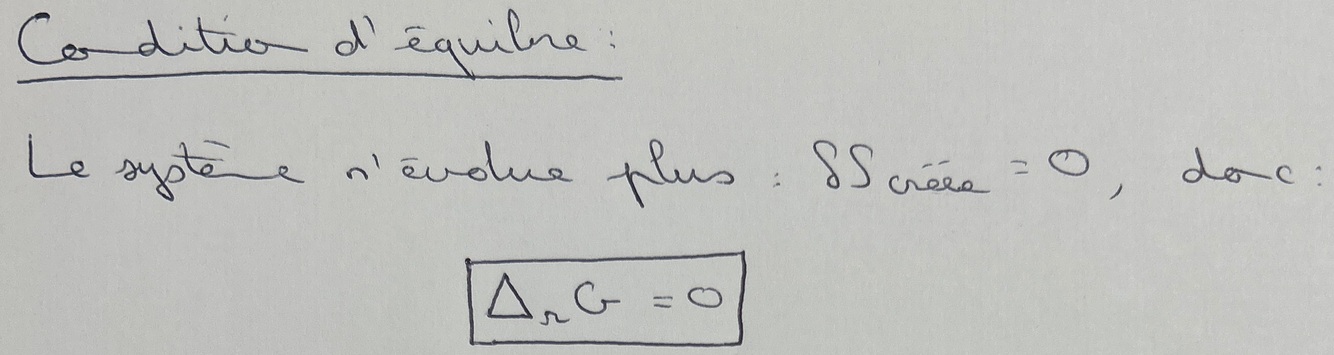 Condition d'équilbre :
Le système n'évolue plus : δS créée = 0, donc :
Δ_r G = 0